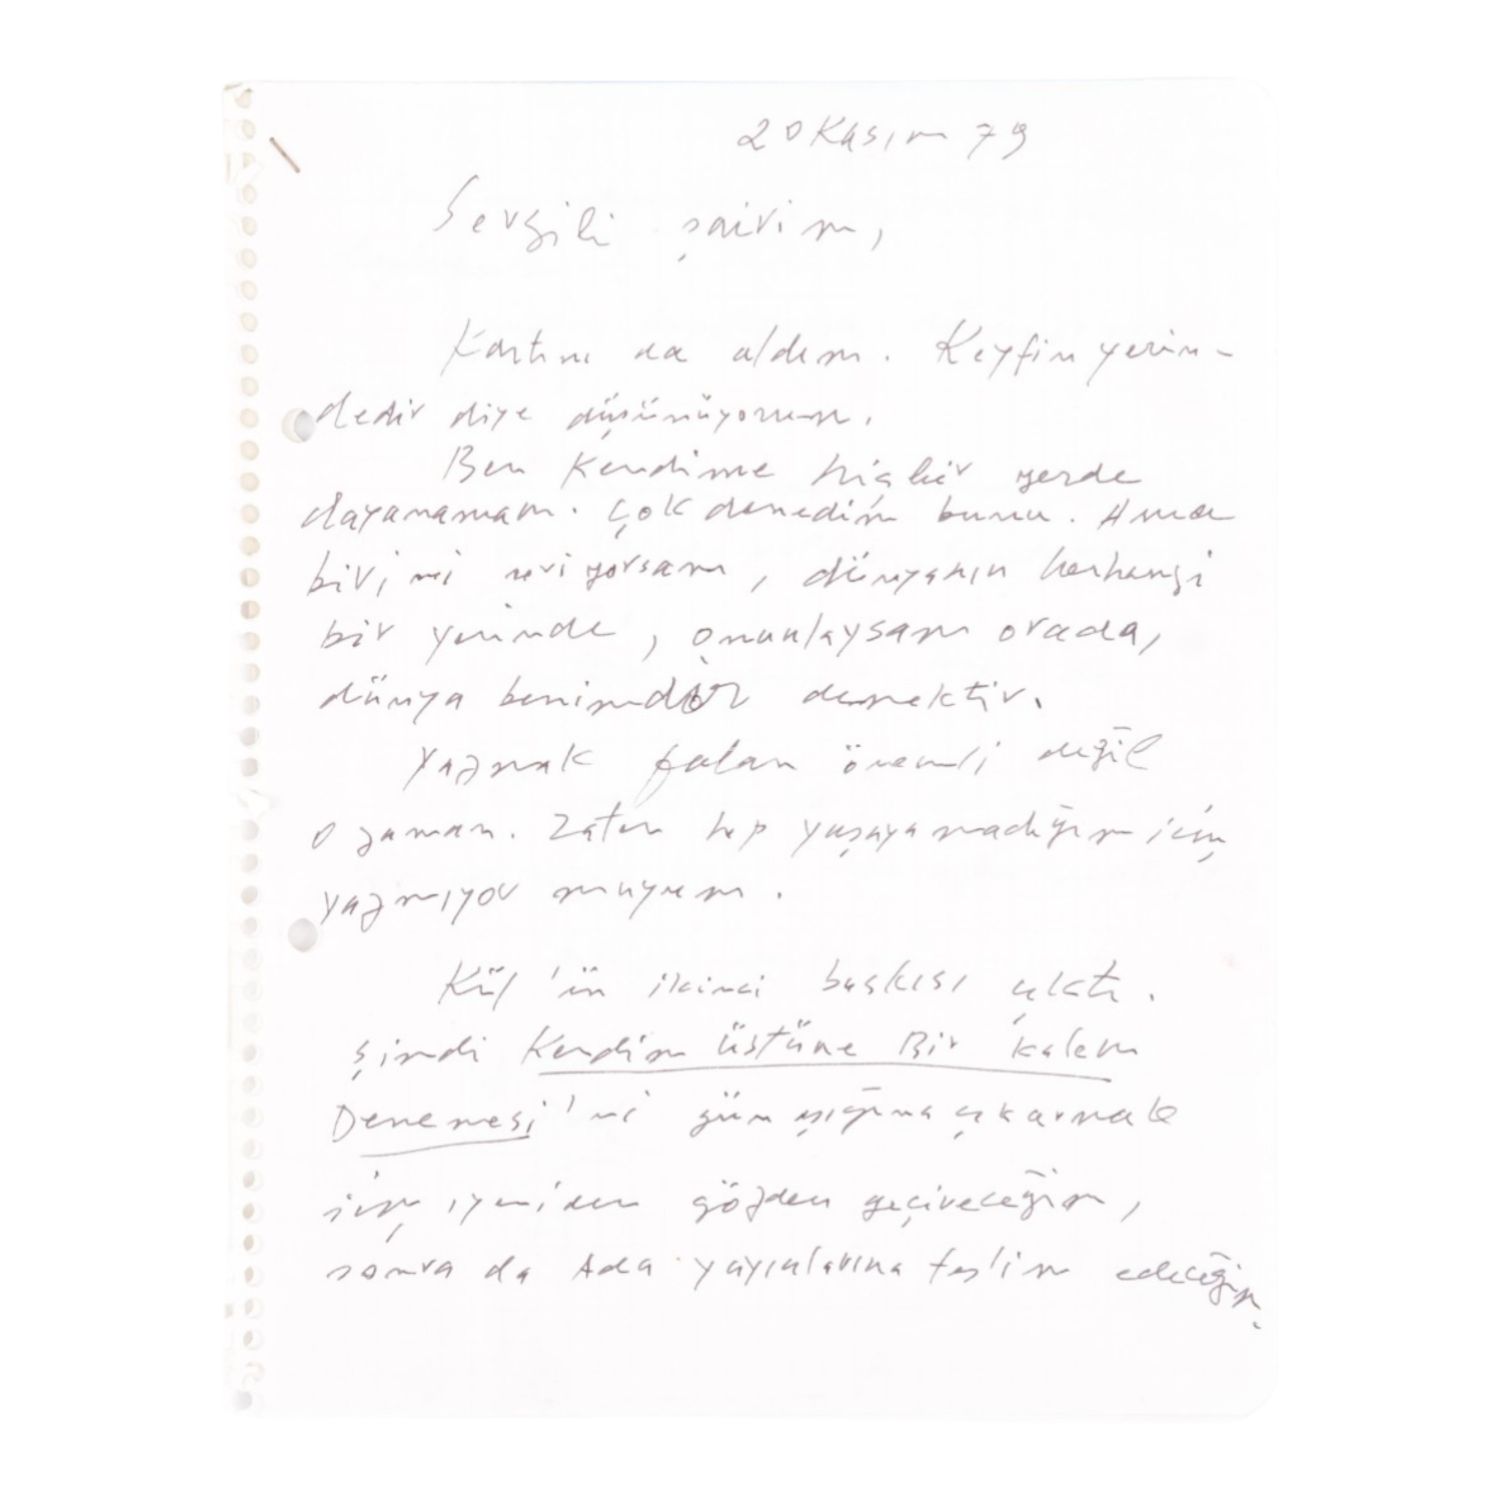 20 Kasım 79
Sevgili şairim,
Kartını da aldım. Keyfin yerin-
dedir diye düşünüyorum.
Ben kendime hiçbir yerde
dayanamam. Çok denedim bunu. Ama
birini seviyorsam, dünyanın herhangi
bir yerinde, onunlaysam orada,
dünya benimdir demektir.
Yazmak falan önemli değil
o zaman. Zaten hep yaşayamadığım için
yazmıyor muyum.
Kül'ün ikinci baskısı çıktı.
Şimdi Kendim Üstüne Bir Kalem
Denemesi'ni gün ışığına çıkarmak
için yeniden gözden geçireceğim,
sonra da Ada yayınlarına teslim edeceğim.